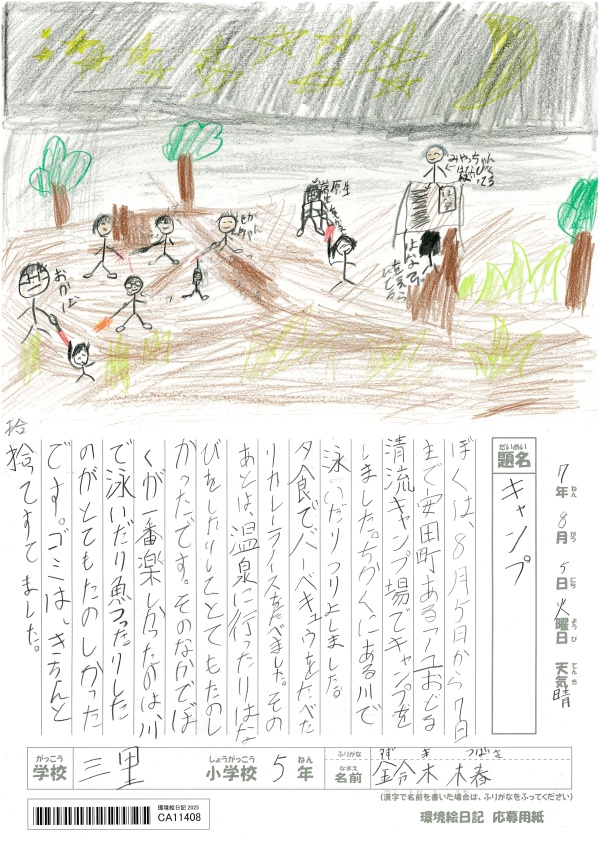 みやっちゃん
はなび
原生
せかちゃん
おかば
はなび
7年 8月 5日 火曜日 天気 晴
ねん がつ にち ようび てんき
だいめい
題名
キャンプ
ぼくは、8月5日から7日
まで安田町あるアユおどる
清流キャンプ場でキャンプを
しました。ちかくにある川で
泳いだりつりよしました。
夕食でバーベキュウをたべた
りカレーライスもたべました。その
あとは、温泉に行ったりはな
びをしたりしてとてもたのし
かったです。そのなかでぼ
くが一番楽しかったのは、川
で泳いだり魚つったりした
のがとてもたのしかった
です。ゴミは、きちんと
捨てすてました。
拾
がっこう
学校 三里
しょうがっこう
小学校 5年
ねん
ふりがな すずき つばさ
なまえ
名前 鈴木 椿
(漢字で名前を書いた場合は、ふりがなをふってください)
環境絵日記 2025
CA11408
環境絵日記 応募用紙